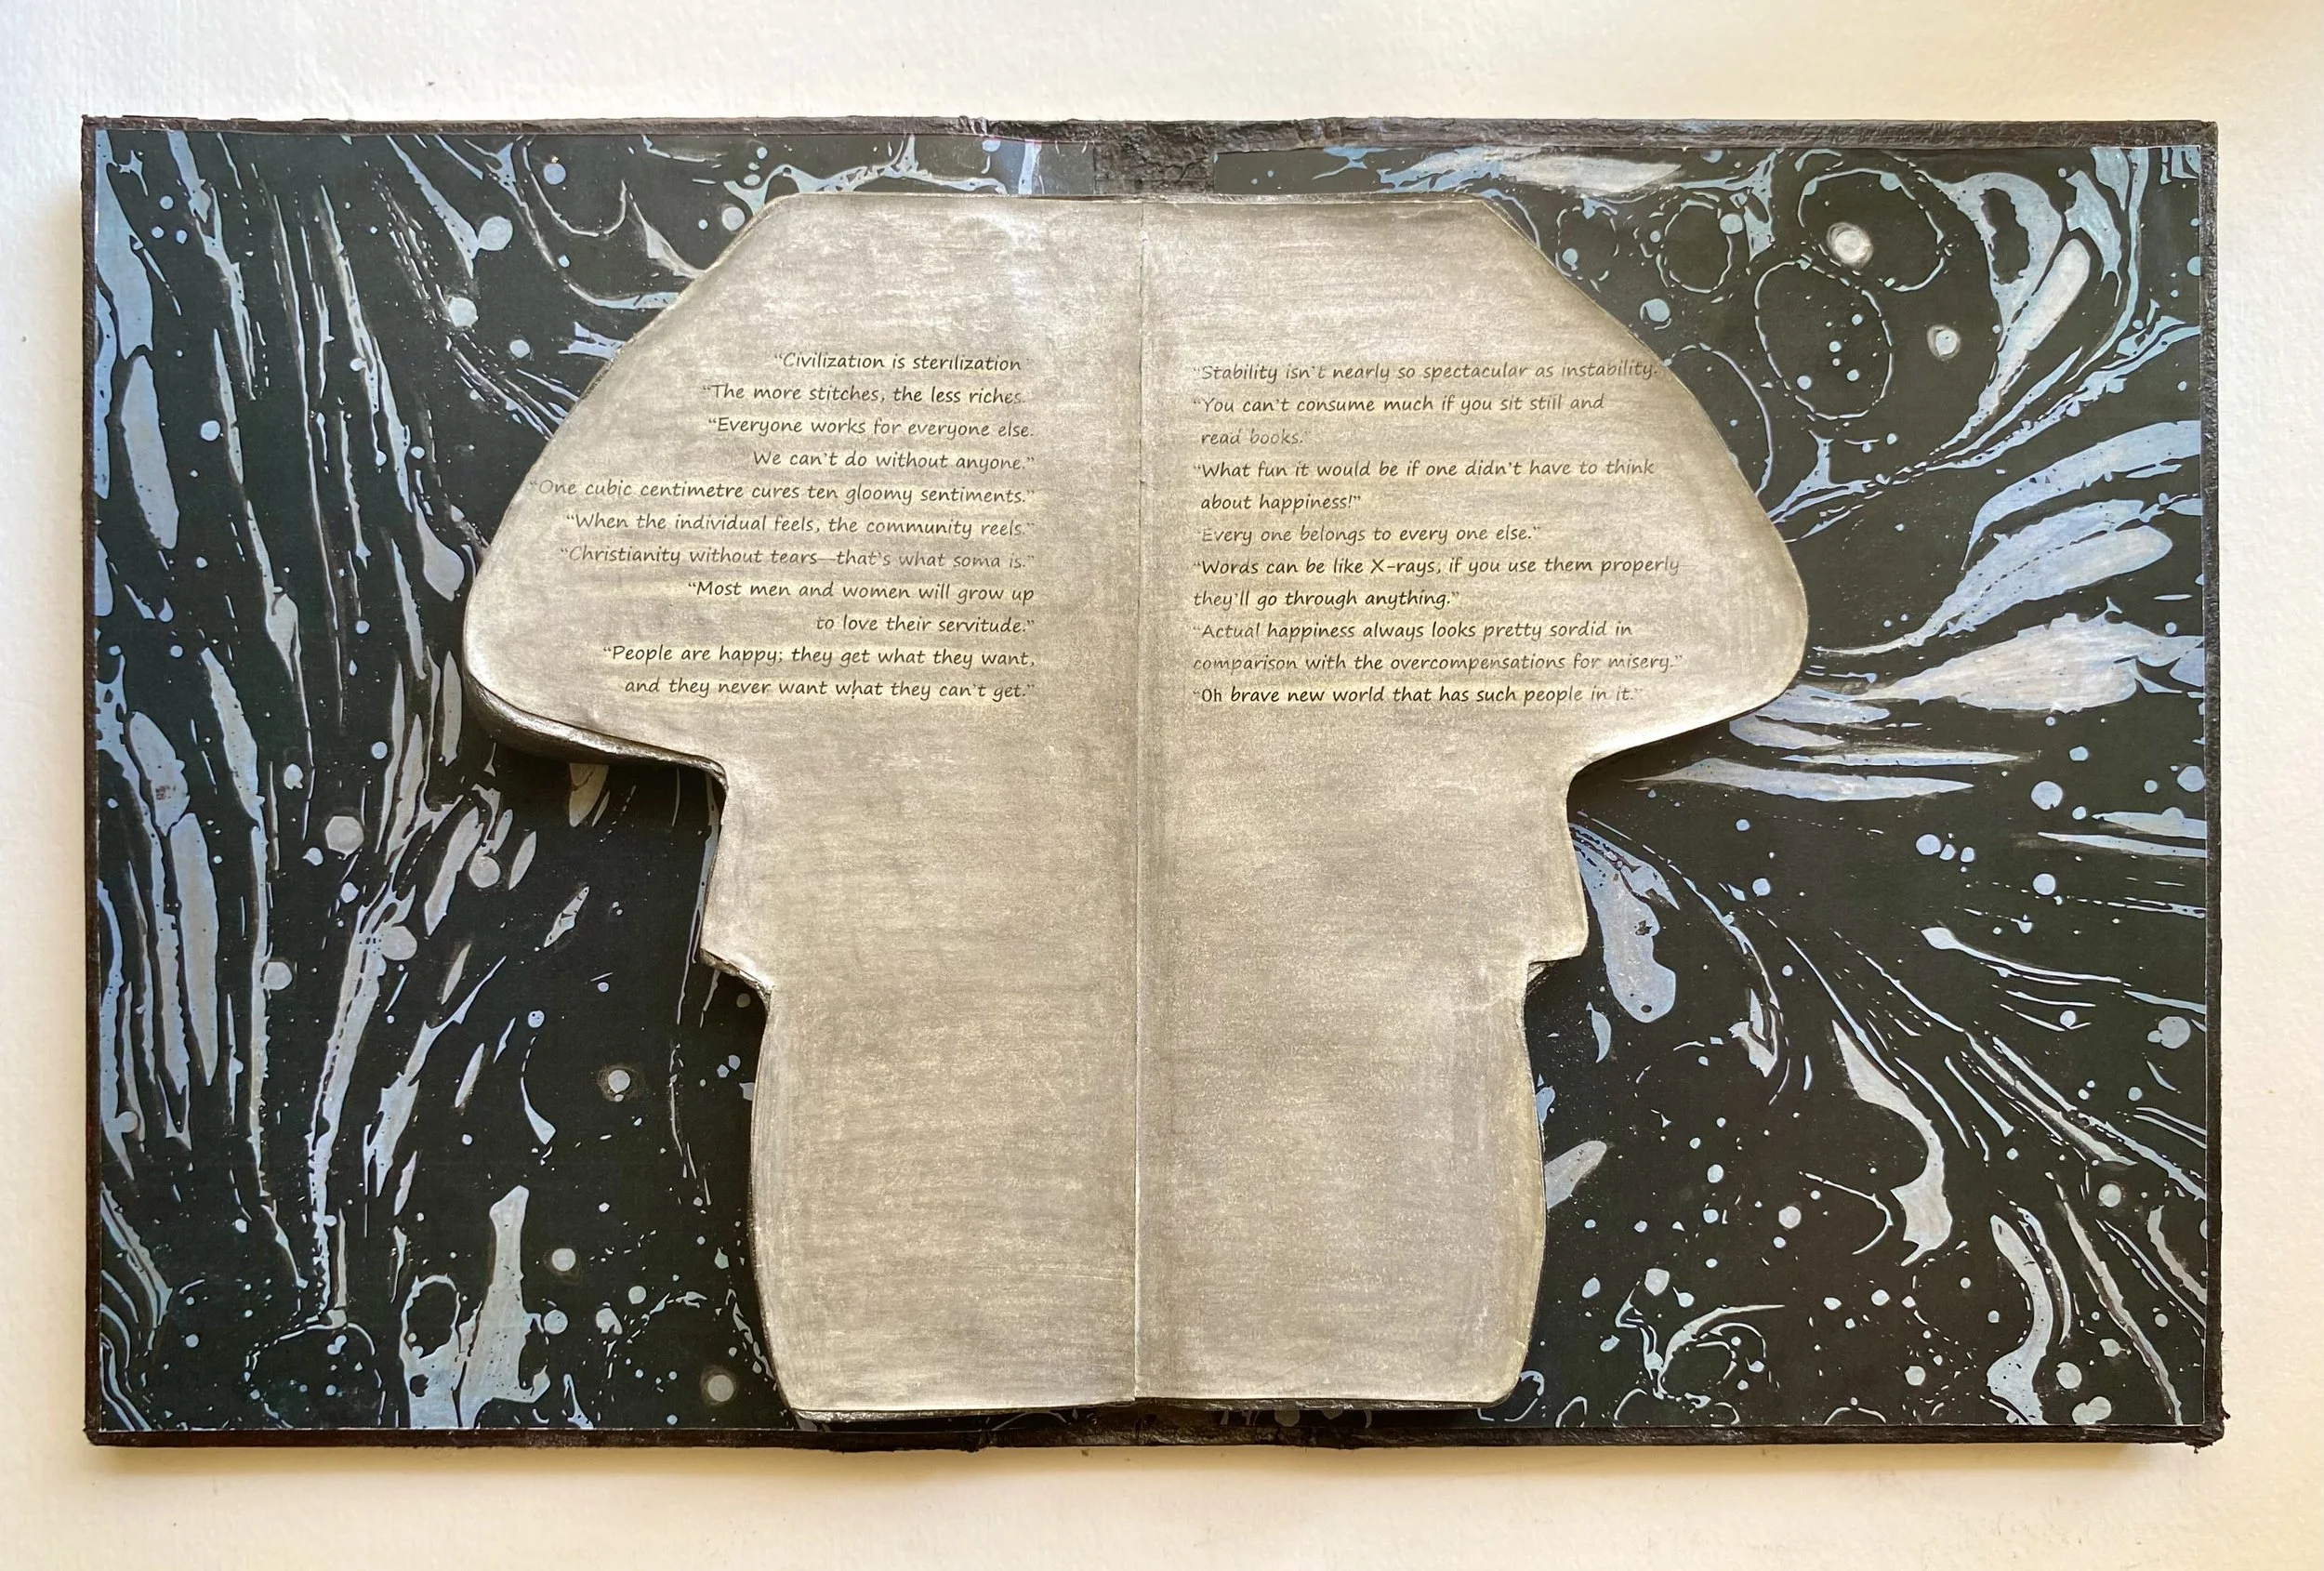 “Civilization is sterilization”
“The more stitches, the less riches.”
“Everyone works for everyone else.
We can't do without anyone.”
“One cubic centimetre cures ten gloomy sentiments.”
“When the individual feels, the community reels.”
“Christianity without tears—that's what soma is.”
“Most men and women will grow up
to love their servitude.”
“People are happy; they get what they want,
and they never want what they can't get.”
“Stability isn't nearly so spectacular as instability.”
“You can't consume much if you sit still and
read books.”
“What fun it would be if one didn't have to think
about happiness!”
“Every one belongs to every one else.”
“Words can be like X-rays, if you use them properly—
they'll go through anything.”
“Actual happiness always looks pretty sordid in
comparison with the overcompensations for misery.”
“Oh brave new world that has such people in it.”